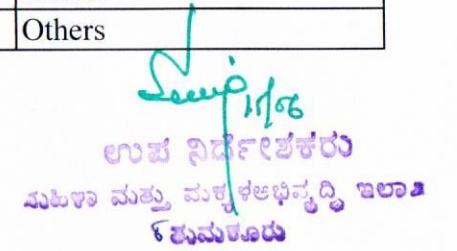 Others
15/06
ಉಪ ನಿರ್ದೇಶಕರು
ಮಹಿಳಾ ಮತ್ತು ಮಕ್ಕಳ ಅಭಿವೃದ್ಧಿ ಇಲಾಖೆ
ತುಮಕೂರು